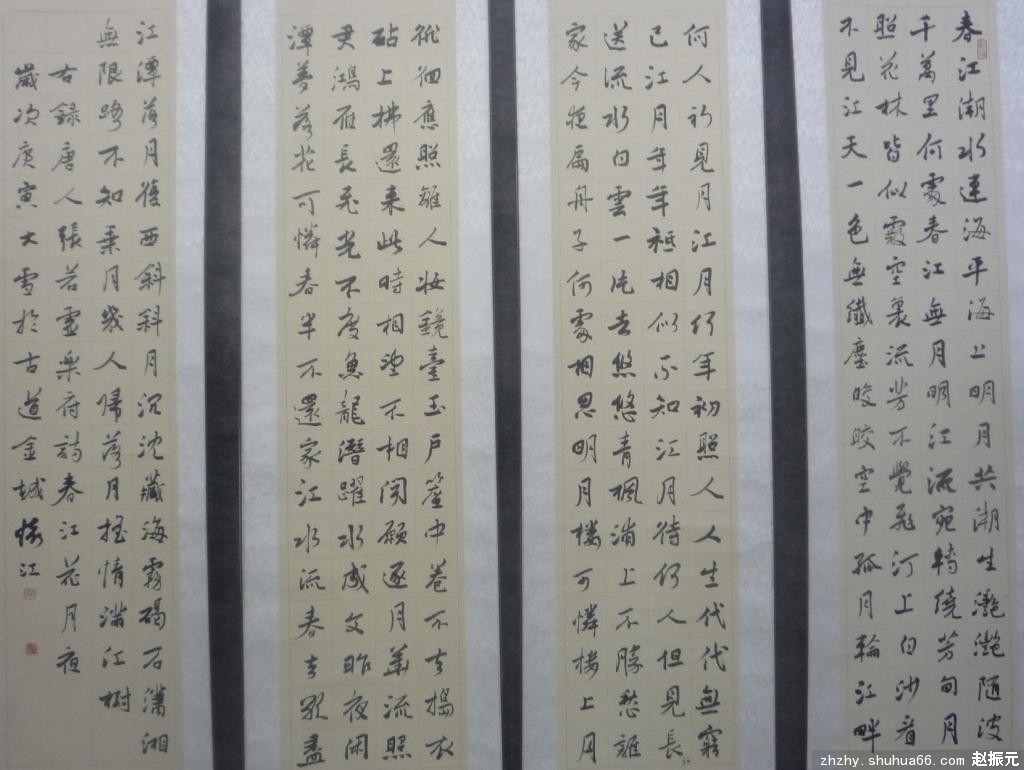 春江潮水連海平海上明月共潮生灩灩随波
千萬里何處春江無月明江流宛轉繞芳甸月
照花林皆似霰空裏流芳不覺飛汀上白沙看
不見江天一色無纖塵皎皎空中孤月輪江畔
何人初見月江月何年初照人人生代代無窮
已江月年年祗相似不知江月待何人但見長
送流水白雲一片去悠悠青楓浦上不勝愁誰
家今夜扁舟子何處相思明月楼可憐楼上月
徘徊應照離人妝鏡臺玉戶簾中卷不去搗衣
砧上拂還来此時相望不相聞願逐月華流照
君鴻雁長飛光不度魚龍潛躍水成文昨夜閑
潭夢落花可憐春半不還家江水流春去欲盡
江潭落月復西斜斜月沉沈藏海霧碣石瀟湘
無限路不知乘月幾人歸落月搖情滿江樹
右録唐人張若虛楽府詩春江花月夜
歲次庚寅大雪於古道金城江
zhzhy.shuhua66.com 赵振元